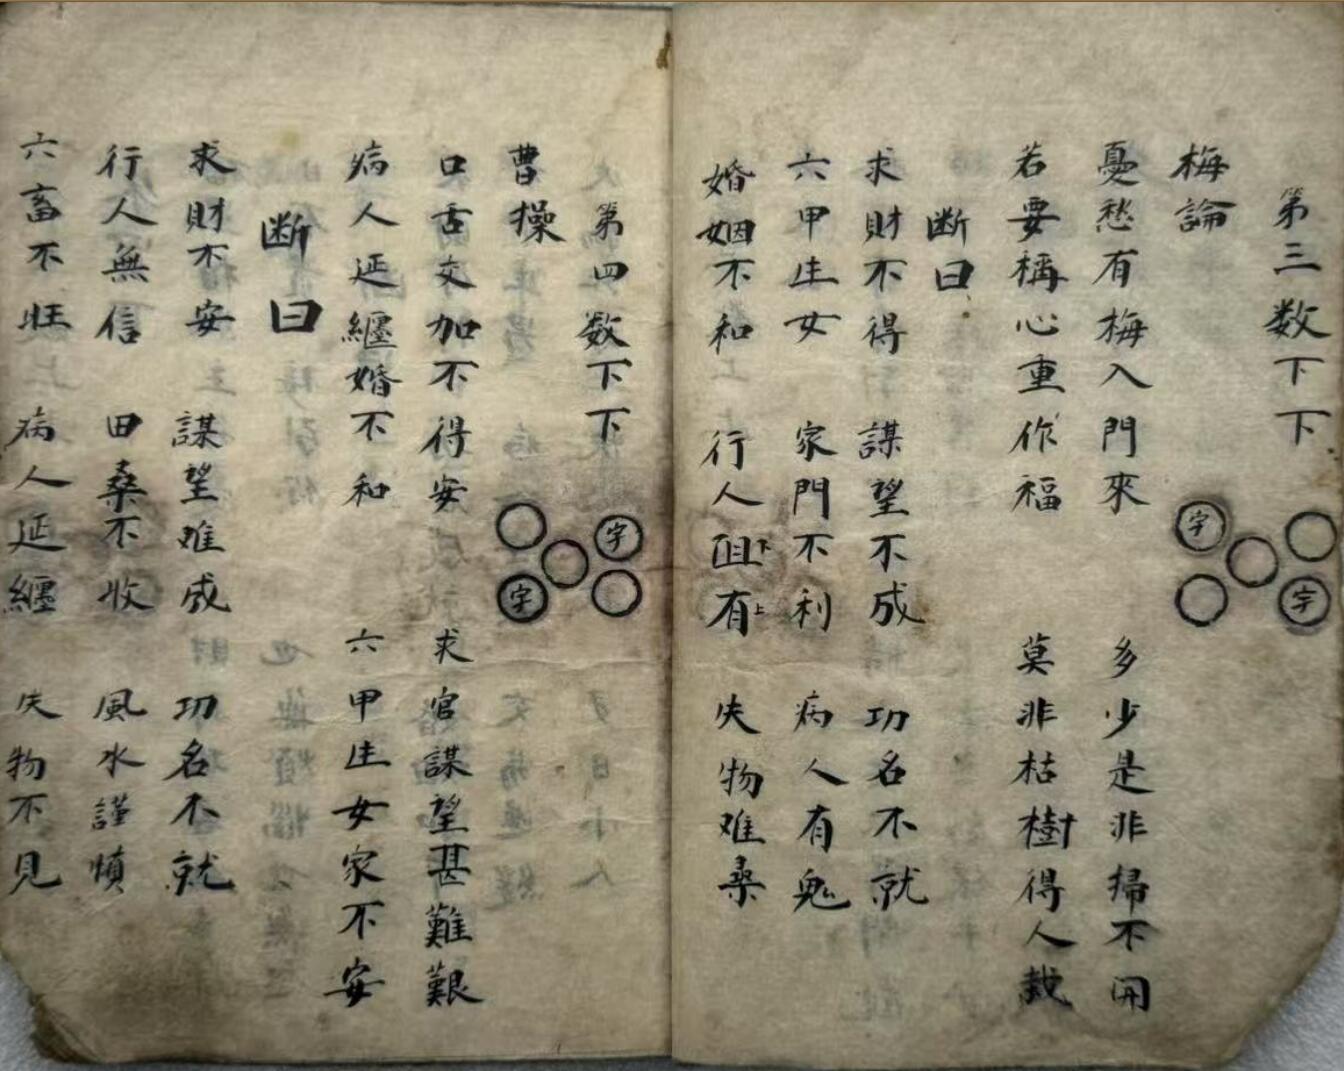 第三数下下
梅論
字
字
憂愁有梅入門來 多少是非掃不開
若要稱心重作福 莫非枯樹得人栽
断曰
求財不得 謀望不成 功名不就
六甲生女 家門不利 病人有鬼
婚姻不和 行人阻下有上 失物难桑
第四数下下
字
字
曹操
口舌交加不得安 求官謀望甚難艱
病人延纏婚不和 六甲生女家不安
断曰
求財不安 謀望难成 功名不就
行人無信 田桑不收 風水謹慎
六畜不旺 病人延纏 失物不見